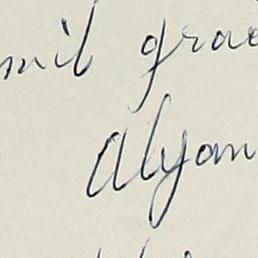 mil grac
Alyan